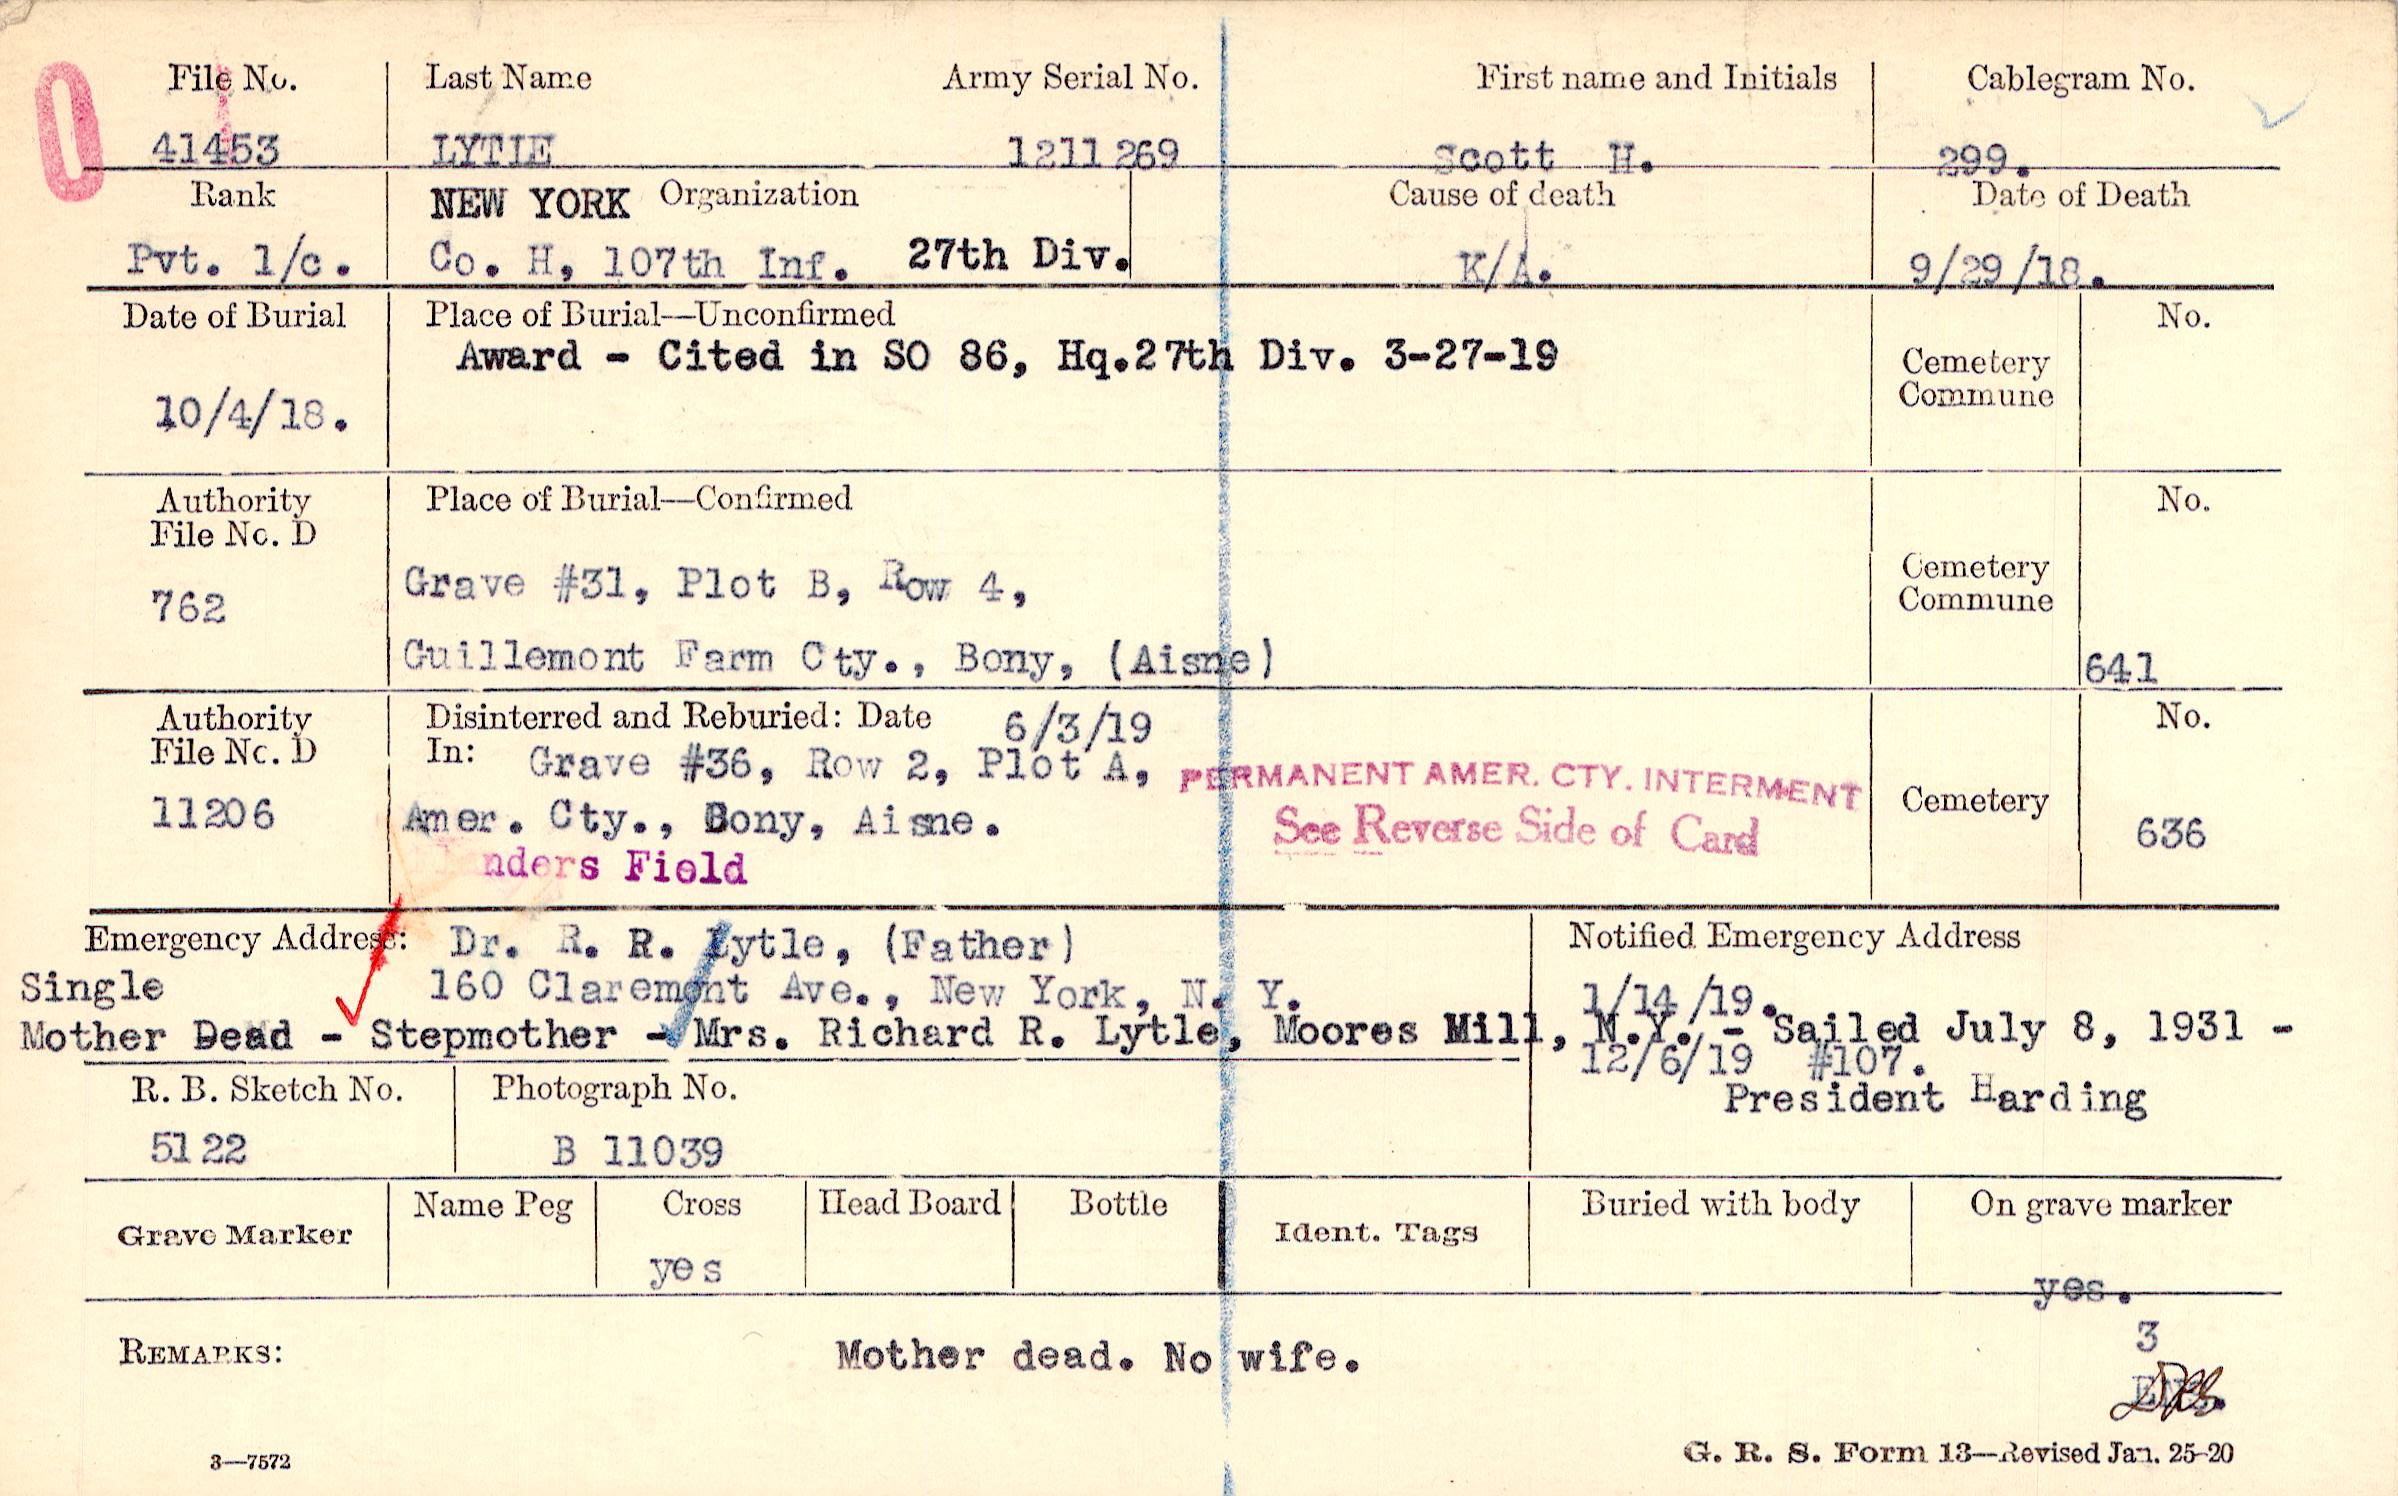 File No. Last Name Army Serial No. First name and Initials Cablegram No.
41453 LYTLE 1211269 Scott H. 299.
Rank NEW YORK Organization Cause of death Date of Death
Pvt. 1/c. Co. H, 107th Inf. 27th Div. K/A. 9/29/18.
Date of Burial Place of Burial—Unconfirmed No.
Award - Cited in SO 86, Hq.27th Div. 3-27-19
Cemetery
Commune
10/4/18.
Authority Place of Burial—Confirmed No.
File No. D
762 Grave #31, Plot B, Row 4, Cemetery
Commune
Guillemont Farm Cty., Bony, (Aisne) 641
Authority Disinterred and Reburied: Date 6/3/19 No.
File No. D In: Grave #36, Row 2, Plot A,
PERMANENT AMER. CTY. INTERMENT
11206 Amer. Cty., Bony, Aisne. See Reverse Side of Card Cemetery 636
nders Field
Emergency Address: Dr. R. R. Lytle, (Father) Notified Emergency Address
Single 160 Claremont Ave., New York, N. Y. 1/14/19.
Mother Dead - Stepmother - Mrs. Richard R. Lytle, Moores Mill, N.Y. - Sailed July 8, 1931 -
12/6/19 #107.
R. B. Sketch No. Photograph No. President Harding
5122 B 11039
Grave Marker Name Peg Cross Head Board Bottle Ident. Tags Buried with body On grave marker
yes yes.
3
REMARKS: Mother dead. No wife.
3—7572 G. R. S. Form 13—Revised Jan. 25-20